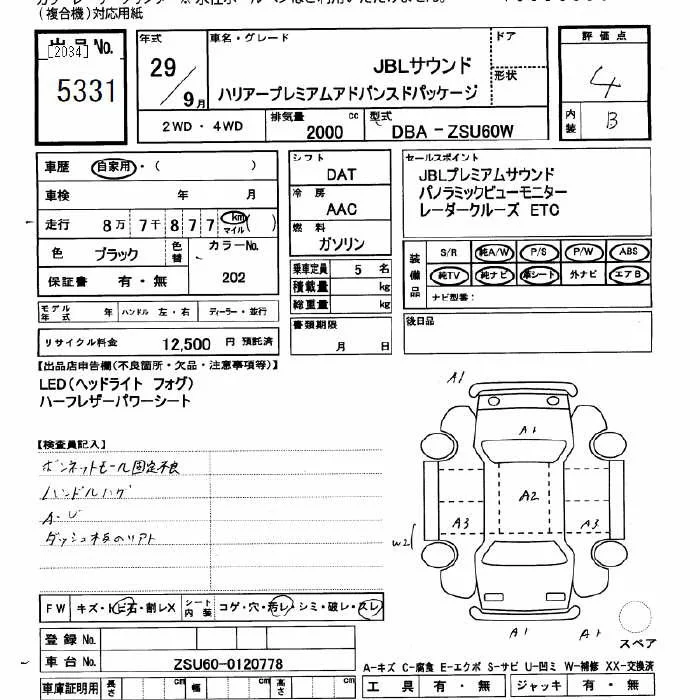 (複合機)対応用紙
出品 No.
[2034]
5331
年式
29/9月
車名・グレード
JBLサウンド
ハリアープレミアムアドバンスドパッケージ
ドア
形状
2WD ・ 4WD
排気量 2000 cc
型式 DBA - ZSU60W
評価点
4
内装 B
車歴 自家用・( )
車検 年 月
走行 8万 7千 8 7 7 km マイル ( )
色 ブラック 色替 カラーNo. 202
保証書 有・無
モデル年式 年 ハンドル 左・右 ディーラー・並行
リサイクル料金 12,500 円 預託済
シフト DAT
冷房 AAC
燃料 ガソリン
乗車定員 5 名
積載量 kg
総重量 kg
書類期限
月 日
セールスポイント
JBLプレミアムサウンド
パノラミックビューモニター
レーダークルーズ ETC
装備品 S/R 純A/W P/S P/W ABS
純TV 純ナビ 革シート 外ナビ エアB
ナビ型番:
後日品
【出品店申告欄(不良箇所・欠品・注意事項等)】
LED(ヘッドライト フォグ)
ハーフレザーパワーシート
【検査員記入】
ボンネットモール固定不良
ハンドルハゲ
FW キズ・トビ石・割レX シート内装 コゲ・穴・汚レ・シミ・破レ・スレ
登録 No.
車台 No. ZSU60-0120778
車庫証明用 長さ cm 幅 cm 高さ cm
A1
A1
A2
A3
A3
W2
A1
A1
スペア
A-キズ C-腐食 E-エクボ S-サビ U-凹ミ W-補修 XX-交換済
工具 有・無 ジャッキ 有・無